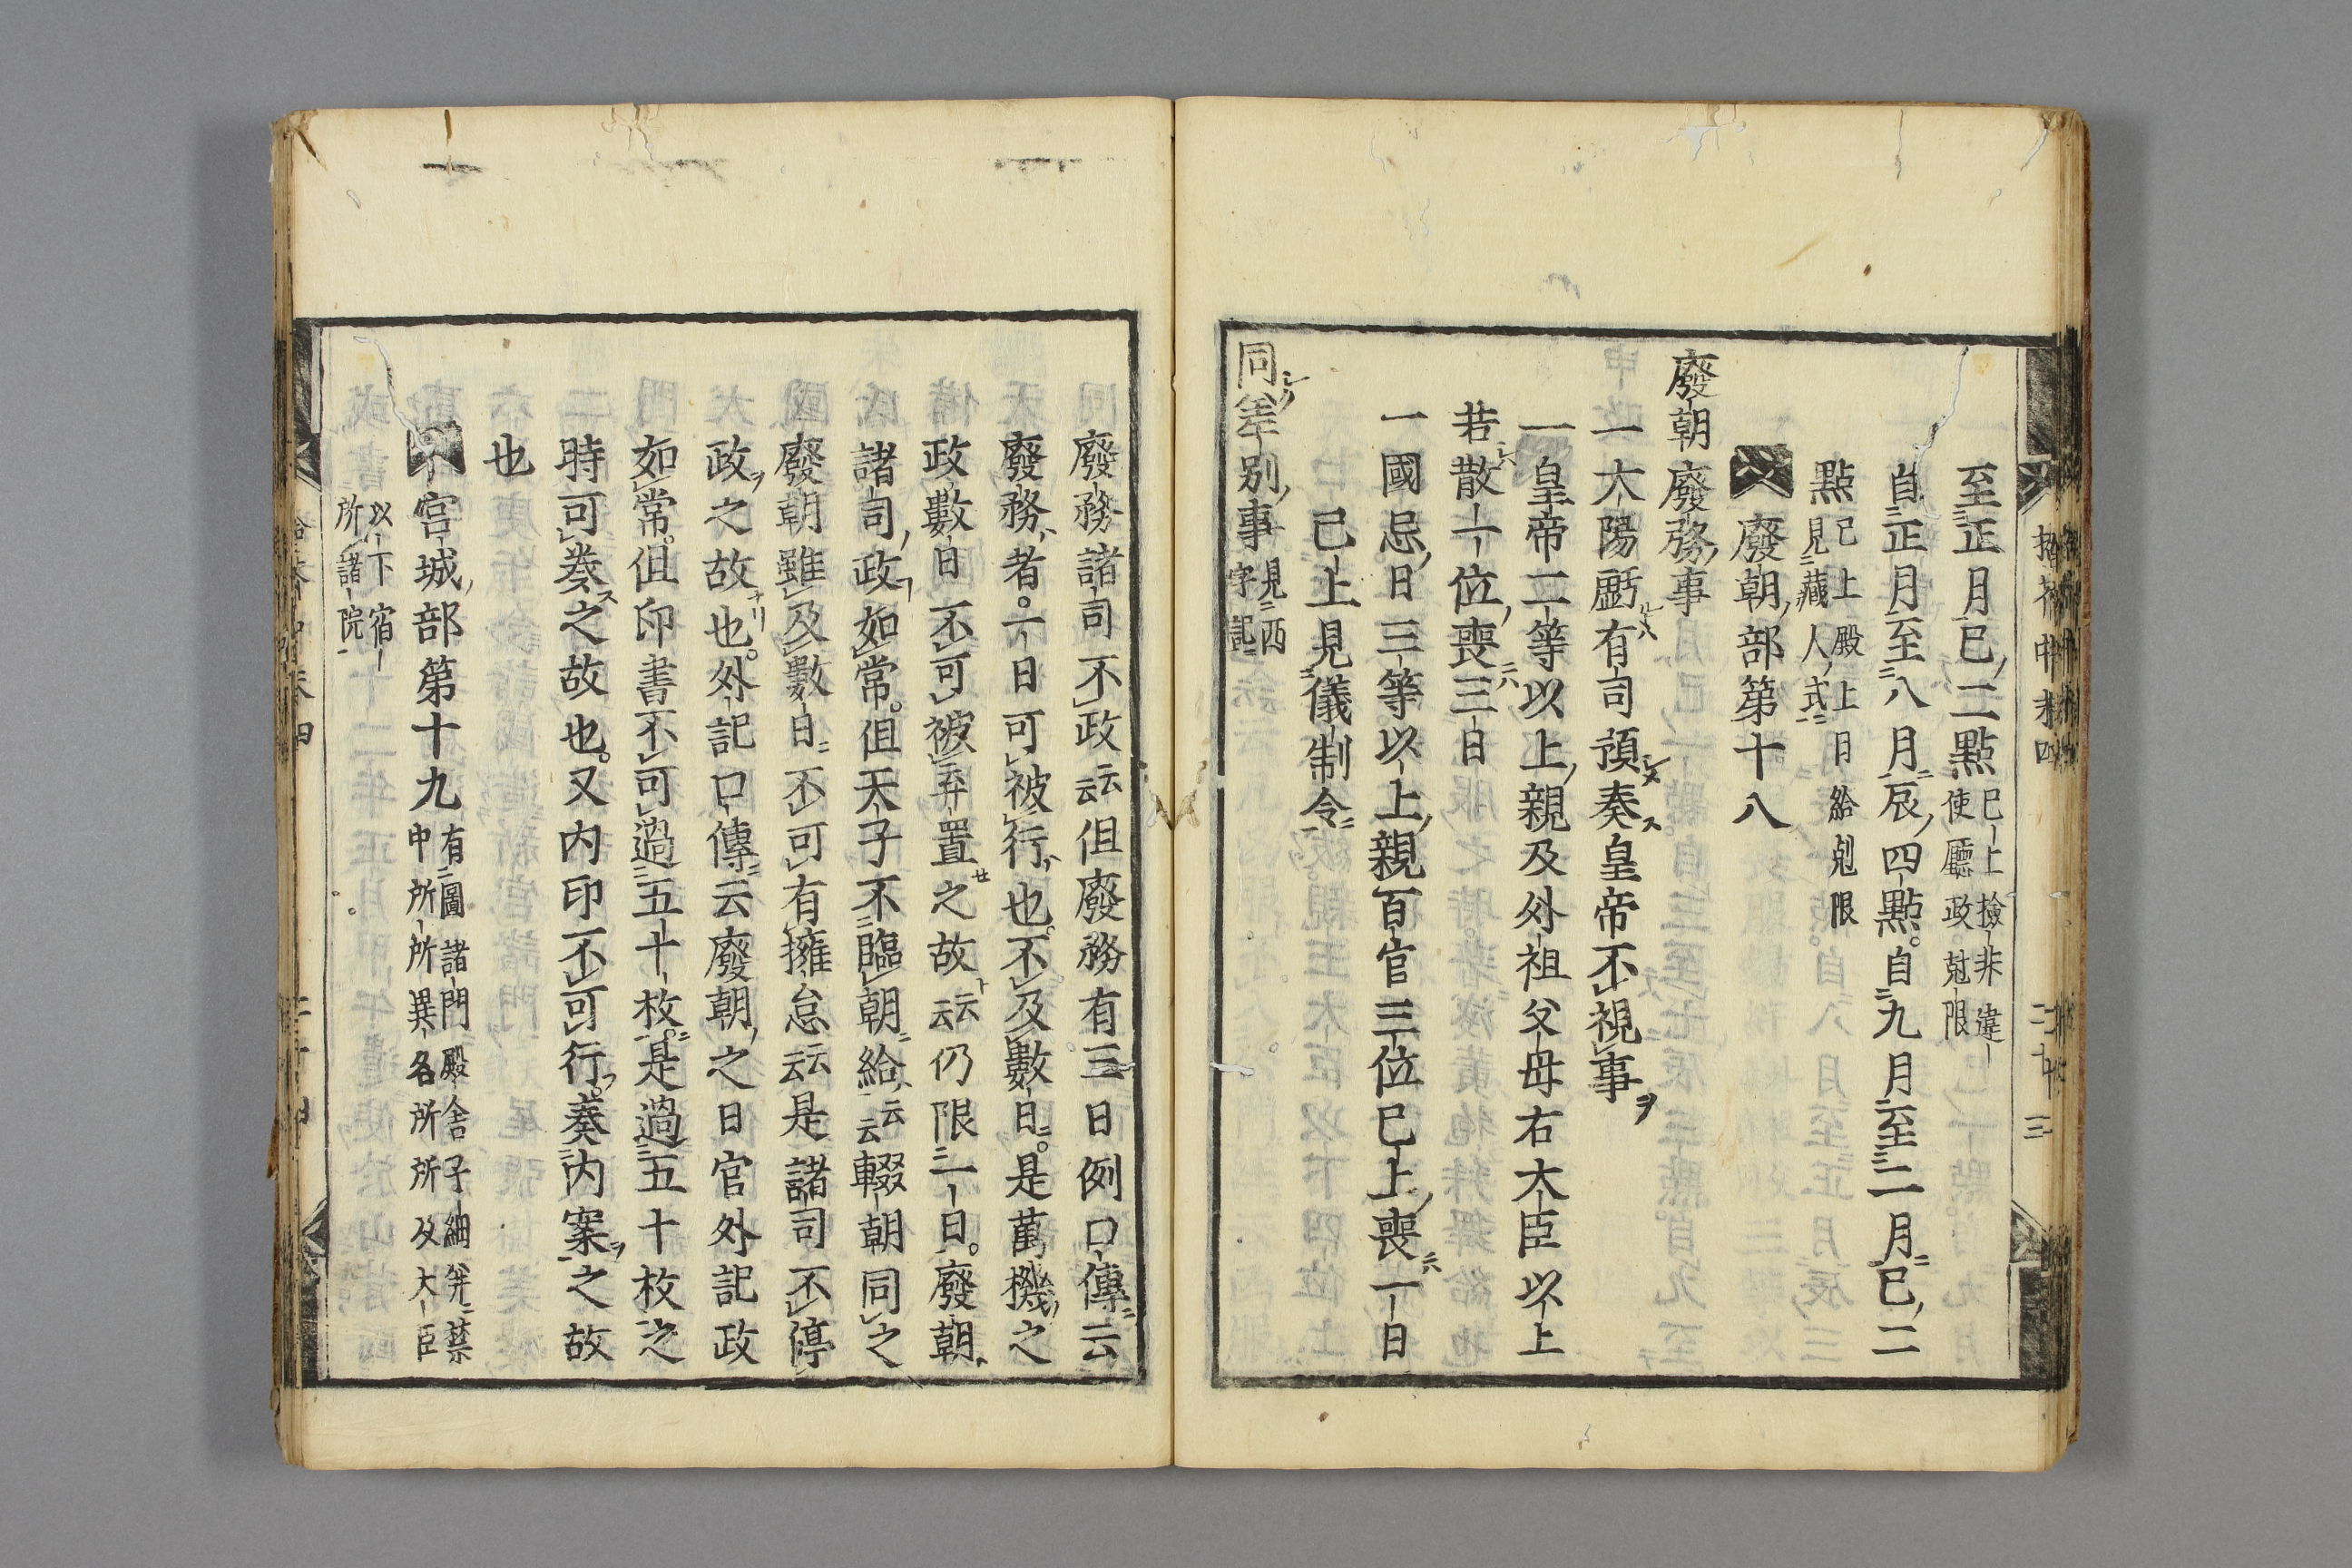 至正月巳二點巳上撿非違使廳政尅限
自正月至八月辰四點自九月至二月巳二
點巳上殿上日給尅限見藏人式
廢朝部第十八
廢朝廢務事
一大陽虧有司預奏皇帝不視事
一皇帝二等以上親及外祖父母右大臣以上
若散一位喪三日
一國忌日三等以上親百官三位已上喪一日
已上見儀制令
同差別事見西字記
廢務諸司不政云云但廢務有三日例口傳云
廢務者一日可被行也不及數日是萬機之
政數日不可被弃置之故云云仍限一日廢朝
諸司政如常但天子不臨朝給云云輟朝同之
廢朝雖及數日不可有擁怠云云是諸司不停
政之故也外記口傳云廢朝之日官外記政
如常但印書不可過五十枚是過五十枚之
時可奏之故也又内印不可行奏内案之故
也
宮城部第十九有圖諸門殿舎子細并禁中所所異名所所及大臣
以下宿所諸院